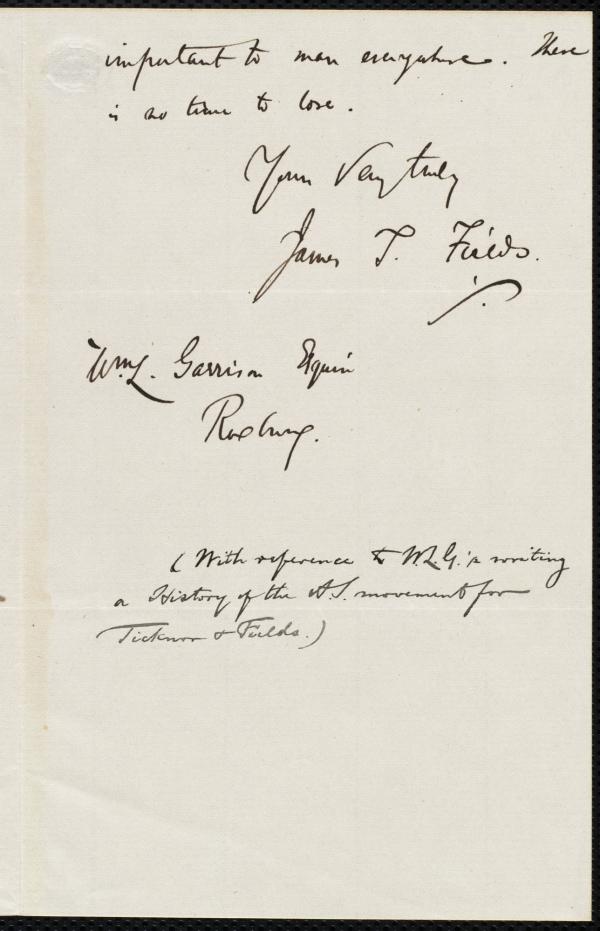 important to man everywhere. There
is no time to lose.
Yours Very truly
James T. Fields.
Wm. L. Garrison Esquire
Roxbury.
( With reference to W.L.G.'s writing
a History of the A.S. movement for
Ticknor & Fields.)